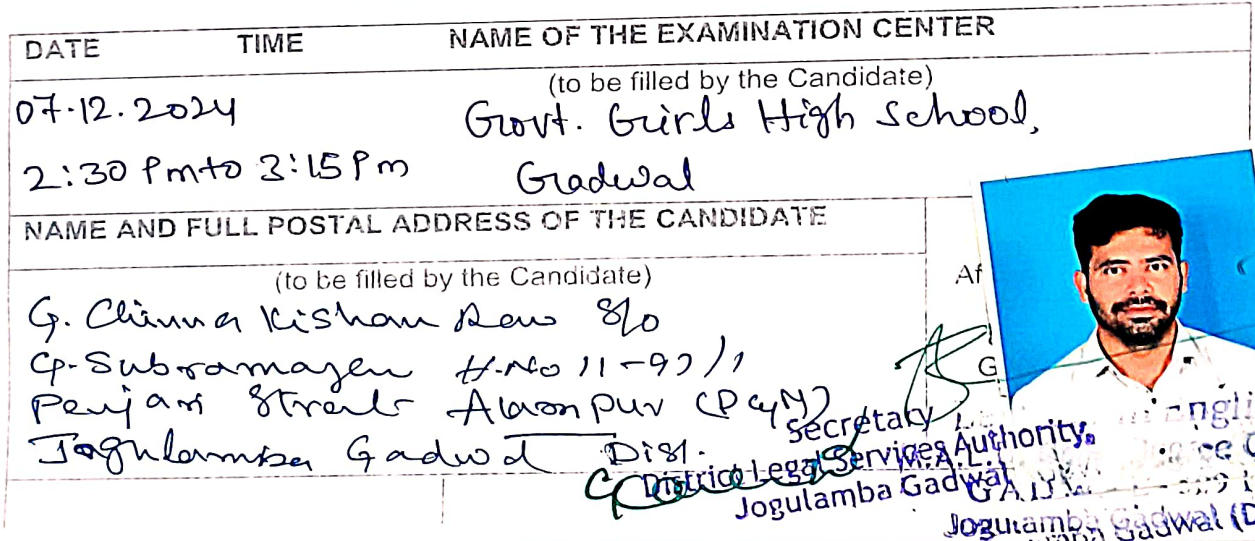 DATE TIME NAME OF THE EXAMINATION CENTER
(to be filled by the Candidate)
07.12.2024 Govt. Girls High School,
2:30 Pm to 3:15 Pm Gadwal
NAME AND FULL POSTAL ADDRESS OF THE CANDIDATE
(to be filled by the Candidate)
Af
G. Chinna Kishan S/o
G. H.No 11-97/1
G
Street
Gadwal Dist.
Secretary
District Legal Services Authority,
Jogulamba Gadwal
Jogulamba Gadwal (D